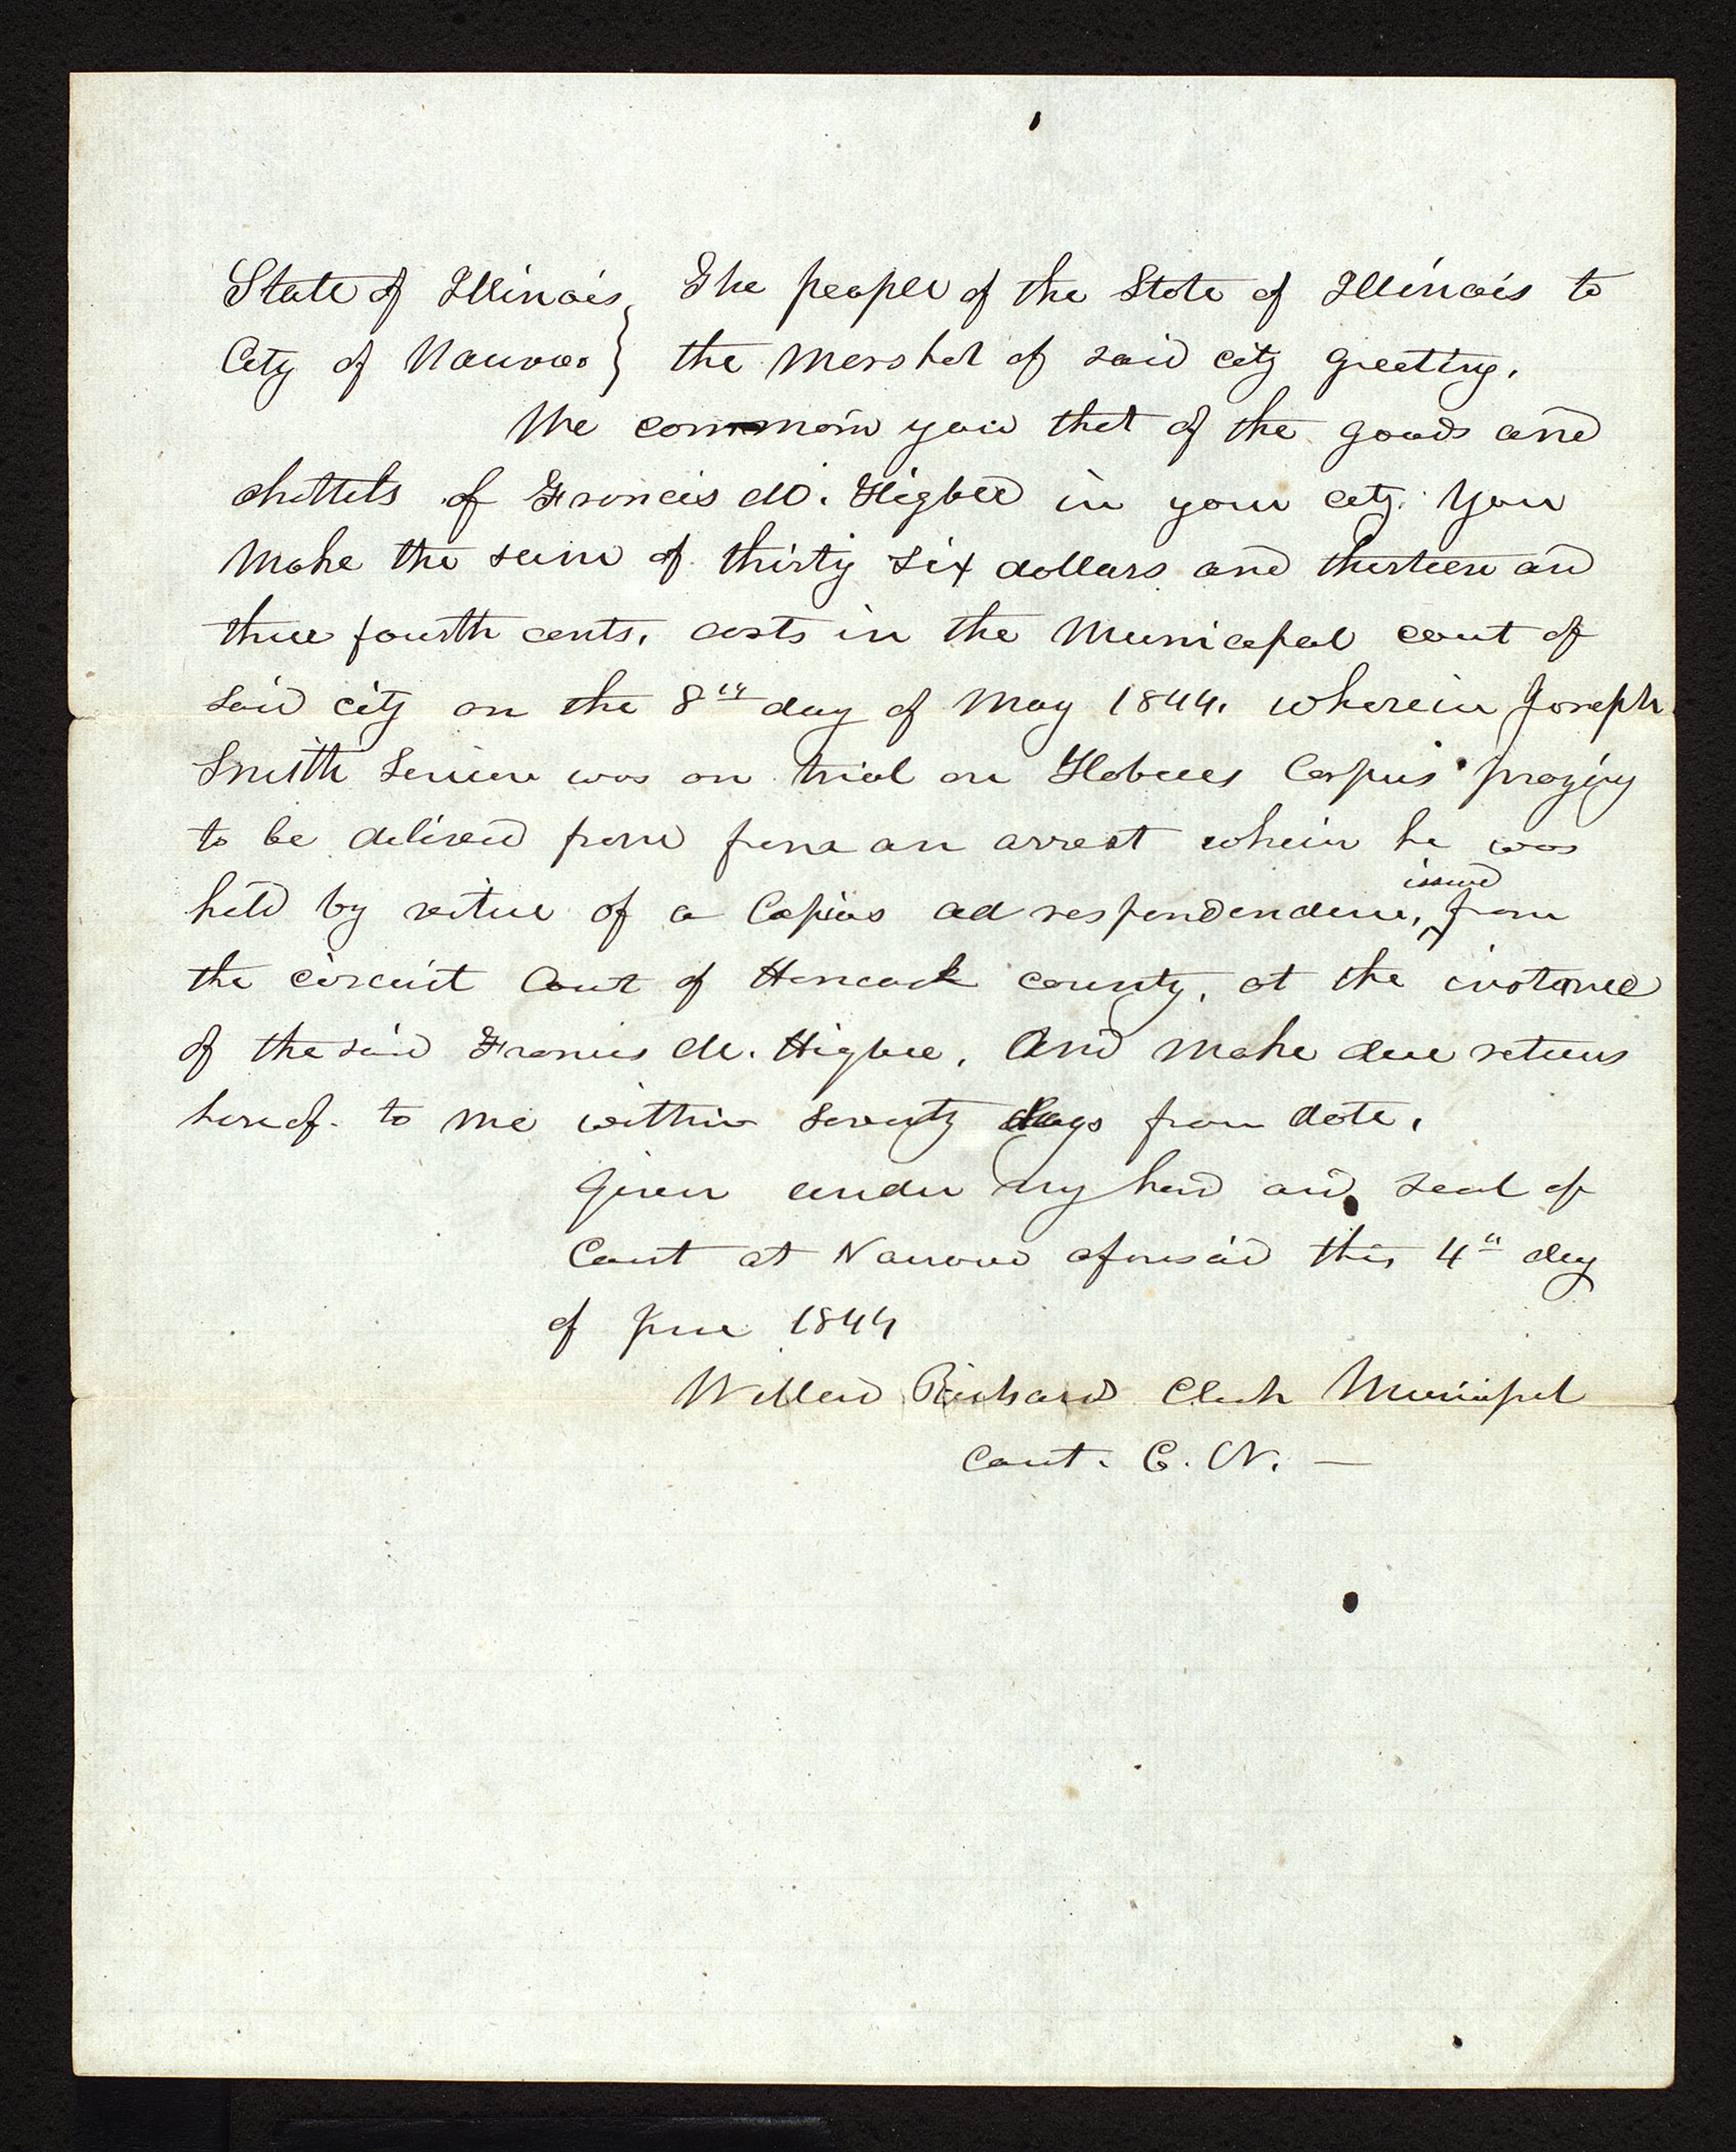 State of Illinois } The people of the State of Illinois to
City of Nauvoo } the Marshal of said city greeting.
We command you that of the goods and
chattels of Francis M. Higbee in your city. You
Make the sum of thirty six dollars and thirteen and
three fourth cents, costs in the Municipal court of
said city on the 8th day of May 1844. wherein Joseph
Smith Senior was on trial on Habeas Corpus praying
to be delivered from from an arrest wherein he was
held by virtue of a Capias ad respondendum, issued from
the circuit Court of Hancock county, at the instance
of the said Francis M. Higbee. And make due return
hereof. to me within seventy days from date.
Given under my hand and seal of
Court at Nauvoo aforesaid this 4th day
of June 1844
Willard Richards Clerk Municipal
Court. C. N. —